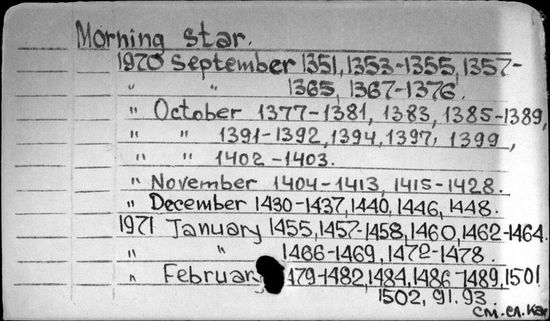 Morning star.
1970 September 1351, 1353-1355, 1357-
" " 1365, 1367-1376.
" October 1377-1381, 1383, 1385-1389,
" " 1391-1392, 1394, 1397, 1399,
" " 1402-1403.
" November 1404-1413, 1415-1428.
" December 1430-1437, 1440, 1446, 1448.
1971 January 1455, 1457-1458, 1460, 1462-1464.
" " 1466-1469, 1472-1478.
" February 1479-1482, 1484, 1486-1489, 1501
1502, 91.93.
см. сл. кар